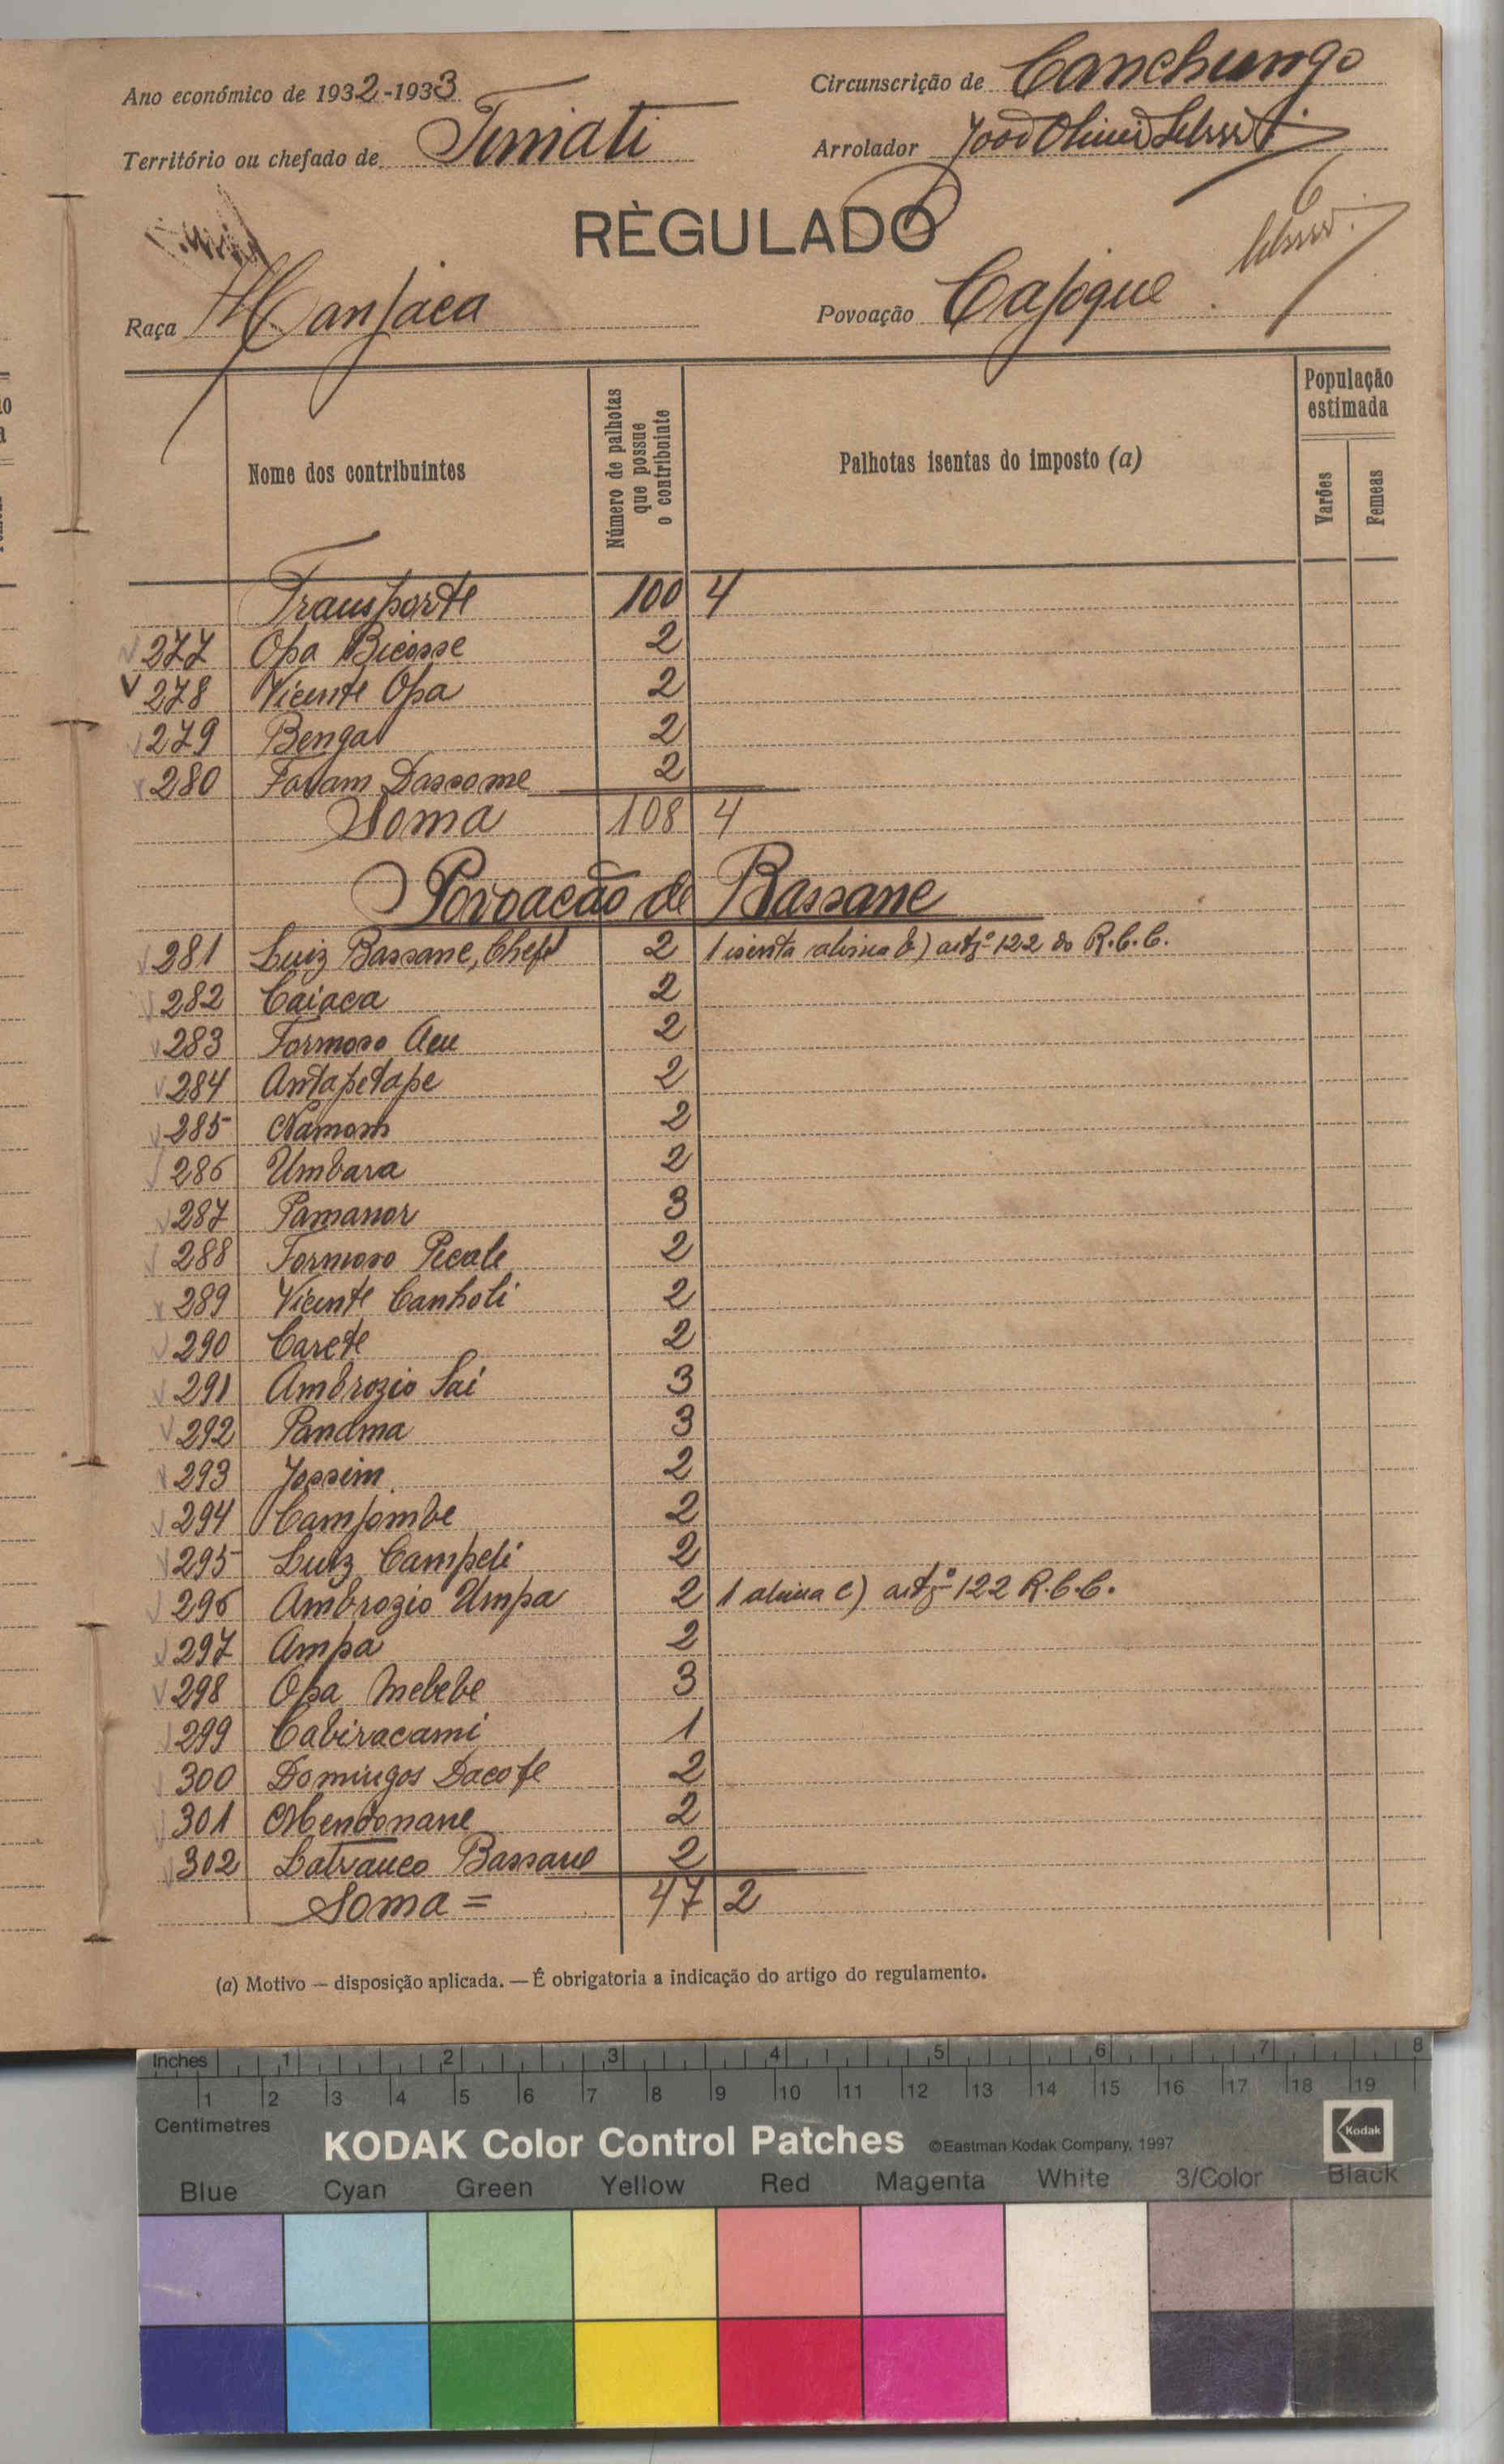 Ano económico de 1932-1933
Circunscrição de Canchungo
Território ou chefado de Timati
Arrolador João
RÈGULADO
6
Raça Manjaca
Povoação Cajoque
Nome dos contribuintes
Número de palhotas que possue o contribuinte
Palhotas isentas do imposto (a)
População estimada
Varões
Femeas
Transporte 100 4
277 Opa Bicosse 2
278 Vicente Opa 2
279 Benga 2
280 Favam Dassome 2
Soma 108 4
Povoacão de Bassane
281 Luiz Bassane, Chefe 2 1 isenta alinea b) artgº 122 do R.C.C.
282 Caiaca 2
283 Formoso Acu 2
284 Antapetape 2
285 Namom 2
286 Umbara 2
287 Pamanor 3
288 Formoso Pecale 2
289 Vicente Canholi 2
290 Carete 2
291 Ambrozio Sai 3
292 Pandma 3
293 Jossim 2
294 Camjombe 2
295 Luiz Campeli 2
296 Ambrozio Umpa 2 1 alinea c) artgº 122 R.C.C.
297 Ampa 2
298 Opa Mebebe 3
299 Cabiracami 1
300 Domingos Dacofe 2
301 Mendonane 2
302 Latranco Bassane 2
Soma = 47 2
(a) Motivo — disposição aplicada. — É obrigatoria a indicação do artigo do regulamento.
Inches 1 2 3 4 5 6 7 8
1 2 3 4 5 6 7 8 9 10 11 12 13 14 15 16 17 18 19
Centimetres
KODAK Color Control Patches ©Eastman Kodak Company, 1997 Kodak
Blue Cyan Green Yellow Red Magenta White 3/Color Black